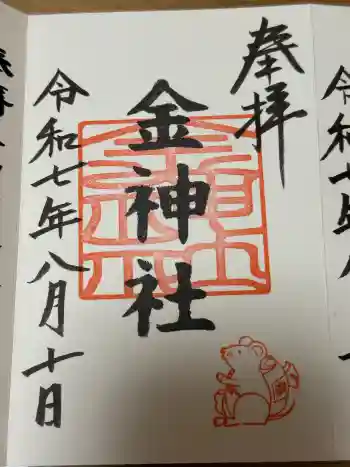 奉拝
金神社
令和七年八月十日